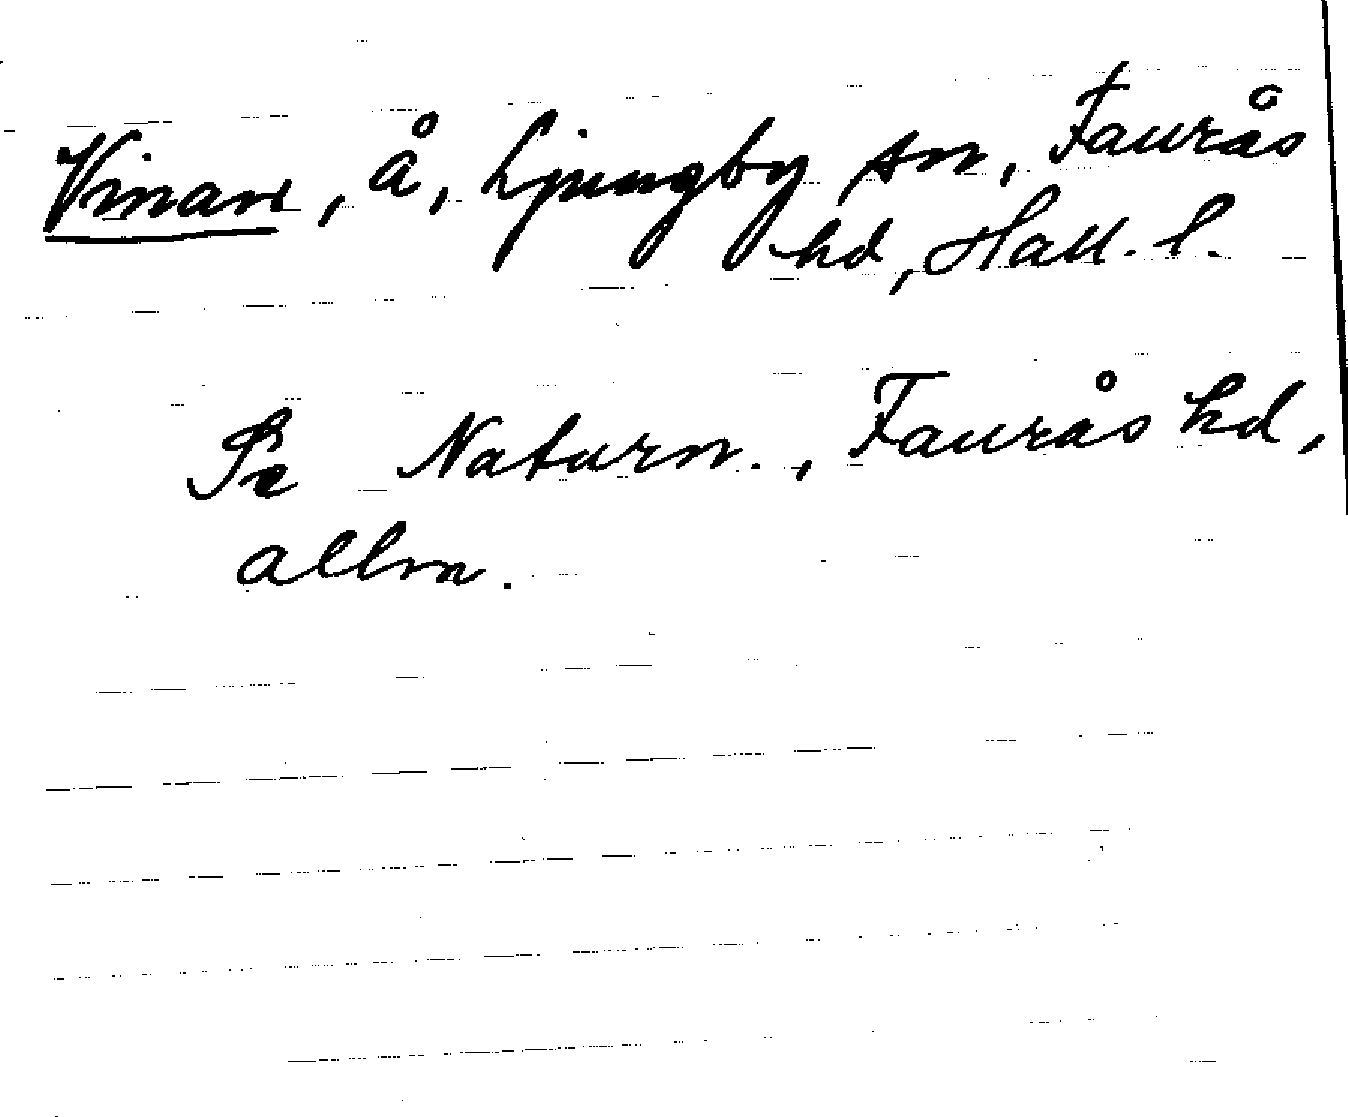 Vinan, å, Ljungby sn, Faurås
hd, Hall. l.
Se Naturn., Faurås hd,
allm.